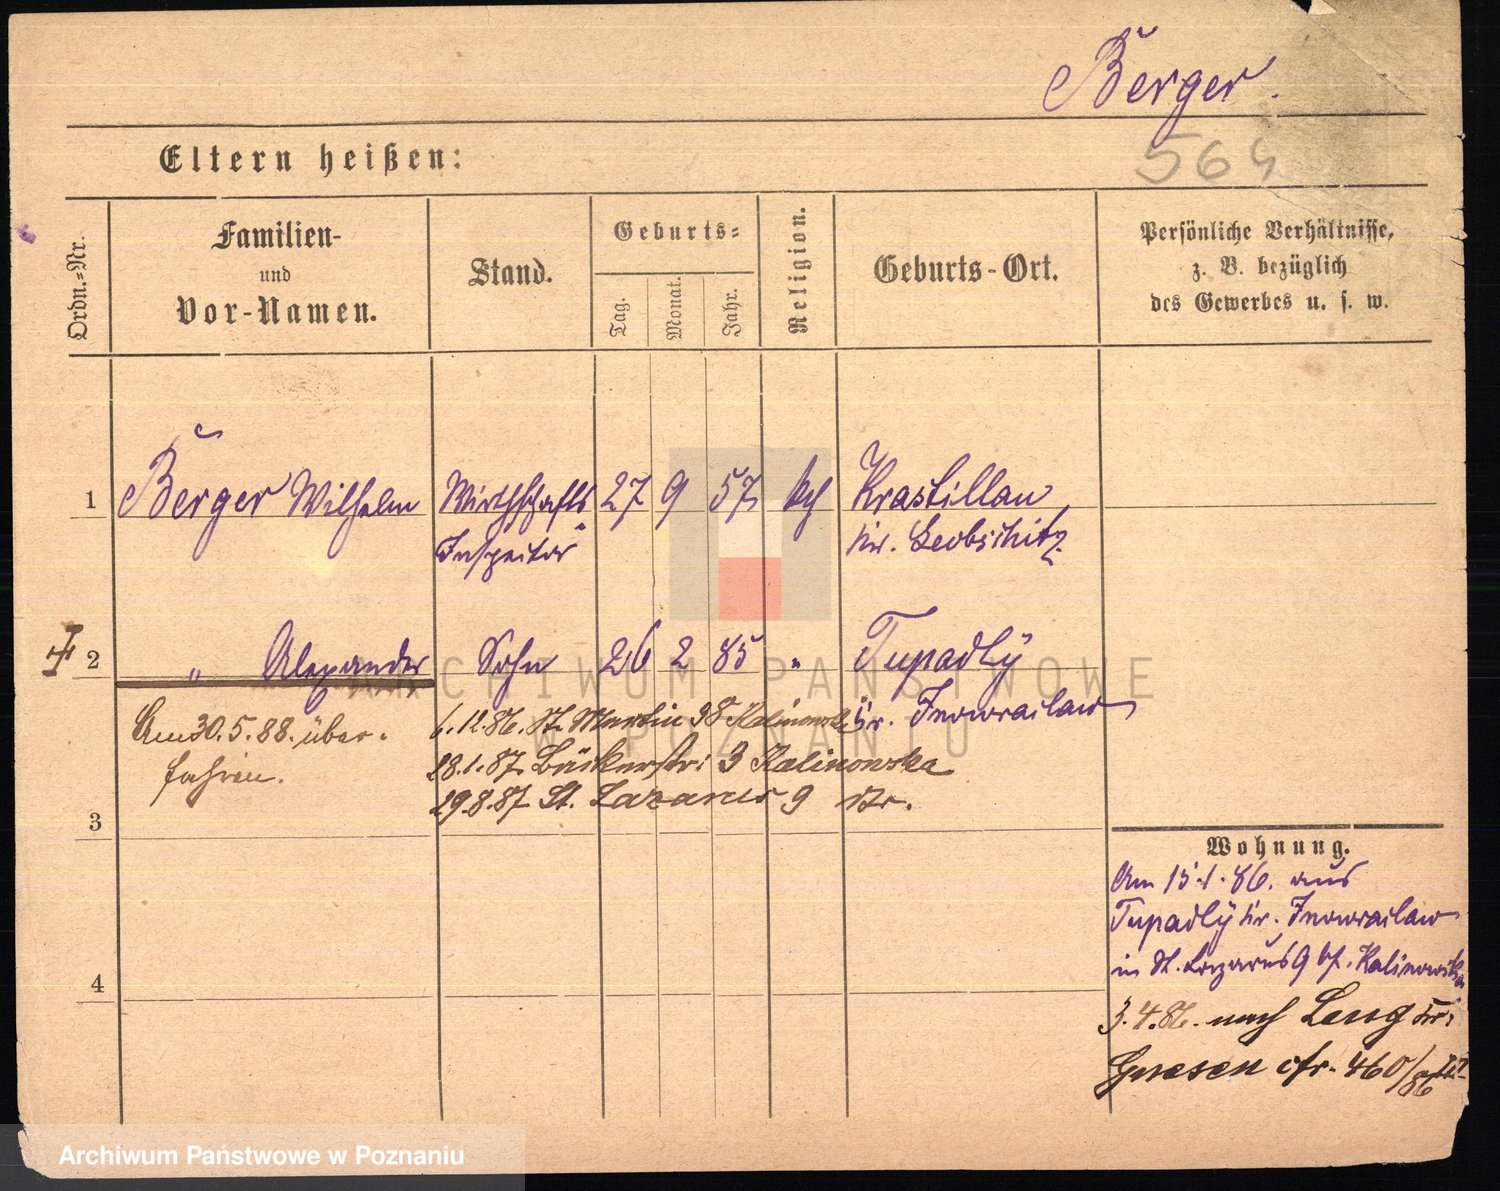 Berger.
564
Eltern heißen:
Ordn.=Nr.
Familien-
und
Vor-Namen.
Stand.
Geburts=
Tag.
Monat.
Jahr.
Religion.
Geburts-Ort.
Persönliche Verhältnisse,
z. B. bezüglich
des Gewerbes u. s. w.
1 Berger Wilhelm Wirthschafts 27 9 57 kh Krastillau
Inspector Kr. Leobschitz
2 " Alexander Sohn 26 2 85 " Tupadly
Kr. Inowraclaw
Am 30.5.88. über-
fahren.
6.12.86. St. Martin 38 Kalinowska
28.1.87. Bäckerstr. 3 Kalinowska
29.8.87 St. Lazarus 9
3
4
Wohnung.
Am 15.1.86. aus
Tupadly Kr. Inowraclaw
in St. Lazarus 9 bf. Kalinowska
3.4.86. nach Kr.
Gnesen cfr. 460/86
ARCHIWUM PAŃSTWOWE
W POZNANIU
Archiwum Państwowe w Poznaniu